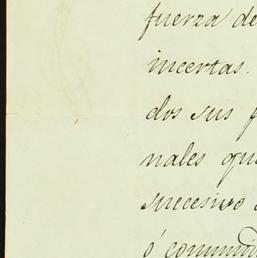 fuerza de
incertas.
dos sus
nales que
sucesivo
ó